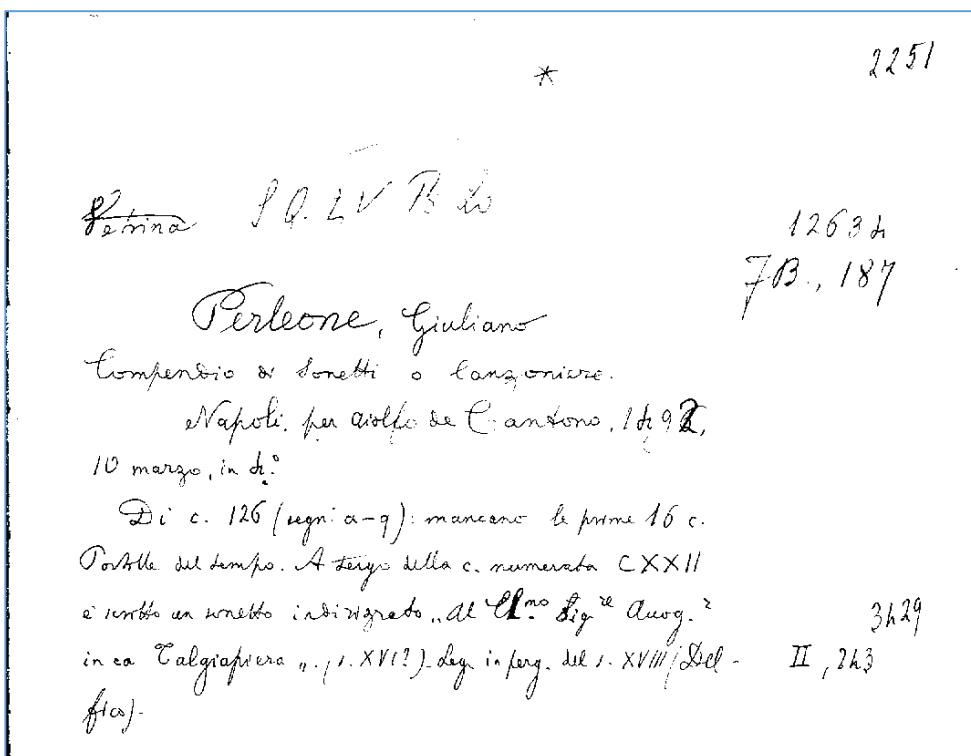 2251
*
Vetrina S Q. LV B
12634
7B., 187
Perleone, Giuliano
Compendio di Sonetti o Canzoniere.
Napoli, per Aiolfo de Cantono, 1492,
10 marzo, in 4.°
Di c. 126 (segn: a-q): mancano le prime 16 c.
Postille del tempo. A tergo della c. numerata CXXII
è scritto un sonetto indirizzato „Al Cl.mo Sig.re Avog.r
3429
in ca Talgiapiera„., s. XVI?). Leg. in perg. del s. XVIII (Del-
II, 243
fico).